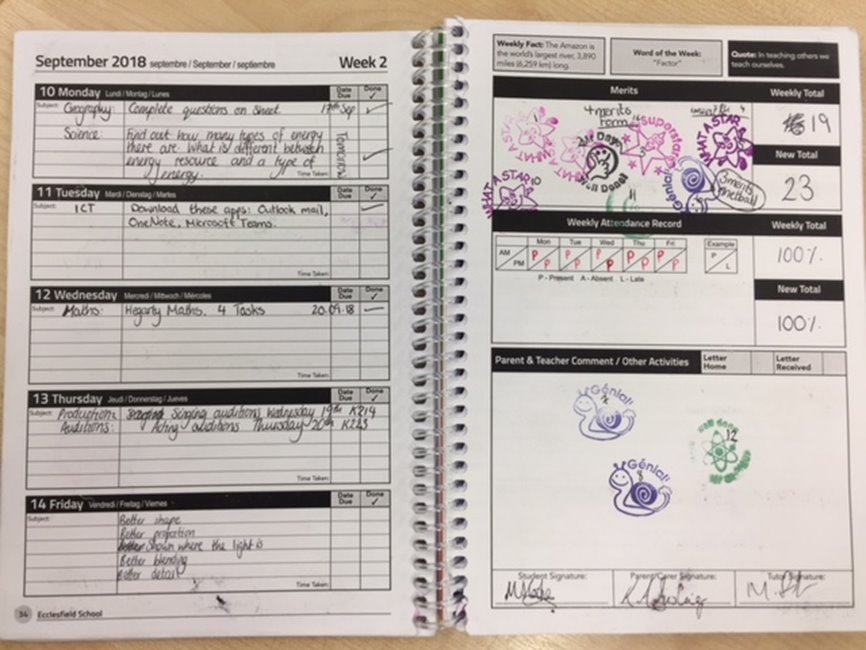 September 2018 septembre / September / septiembre Week 2
10 Monday Lundi / Montag / Lunes Date Due Done ✓
Subject: Geography: Complete questions on sheet 17th Sep
Science: Find out how many types of energy
there are. What is different between
energy resource and a type of
energy.
Tomorrow
Time Taken:
11 Tuesday Mardi / Dienstag / Martes Date Due Done ✓
Subject: ICT Download these apps: Outlook mail,
OneNote, Microsoft Teams.
Time Taken:
12 Wednesday Mercredi / Mittwoch / Miércoles Date Due Done ✓
Subject: Maths: Hegarty Maths. 4 Tasks 20.09.18
Time Taken:
13 Thursday Jeudi / Donnerstag / Jueves Date Due Done ✓
Subject: Production Singing auditions Wednesday 19th K214
Auditions: Acting auditions Thursday 20th K223
Time Taken:
14 Friday Vendredi / Freitag / Viernes Date Due Done ✓
Subject: Better shape
Better proportion
Shown where the light is
Better blending
Better detail
Time Taken:
34 Ecclesfield School
Weekly Fact: The Amazon is
the world's largest river, 3,890
miles (6,259 km) long.
Word of the Week:
"Factor"
Quote: In teaching others we
teach ourselves.
Merits Weekly Total
4 merits
term
Superstar
WHAT A STAR
WHAT A STAR
WHAT A STAR 10
Well Done!
Génial!
3 merits
netball
11
19
New Total
23
Weekly Attendance Record Weekly Total
Mon Tue Wed Thu Fri Example
AM P P P P P P
PM P P P P P L
P - Present A - Absent L - Late
100%
New Total
100%
Parent & Teacher Comment / Other Activities Letter Home Letter Received
Génial!
Well done 12
Génial!
Student Signature: Parent/Carer Signature: Tutor Signature: